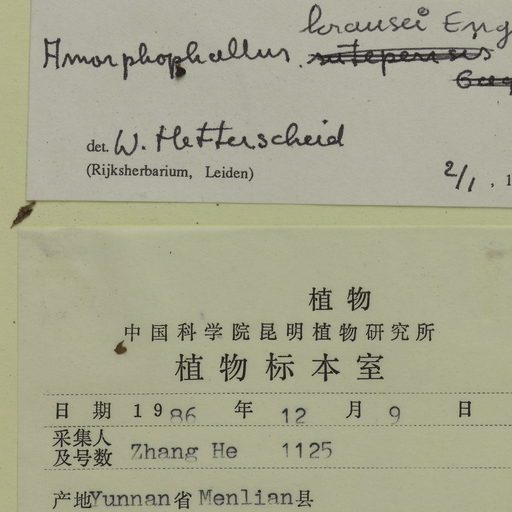 krausei Eng
Amorphophallus sutepensis
Gag
det. W. Hetterscheid
(Rijksherbarium, Leiden)
2/1 , 1
植物
中国科学院昆明植物研究所
植物标本室
日 期 1986 年 12 月 9 日
采集人
及号数 Zhang He 1125
产地Yunnan省 Menlian县